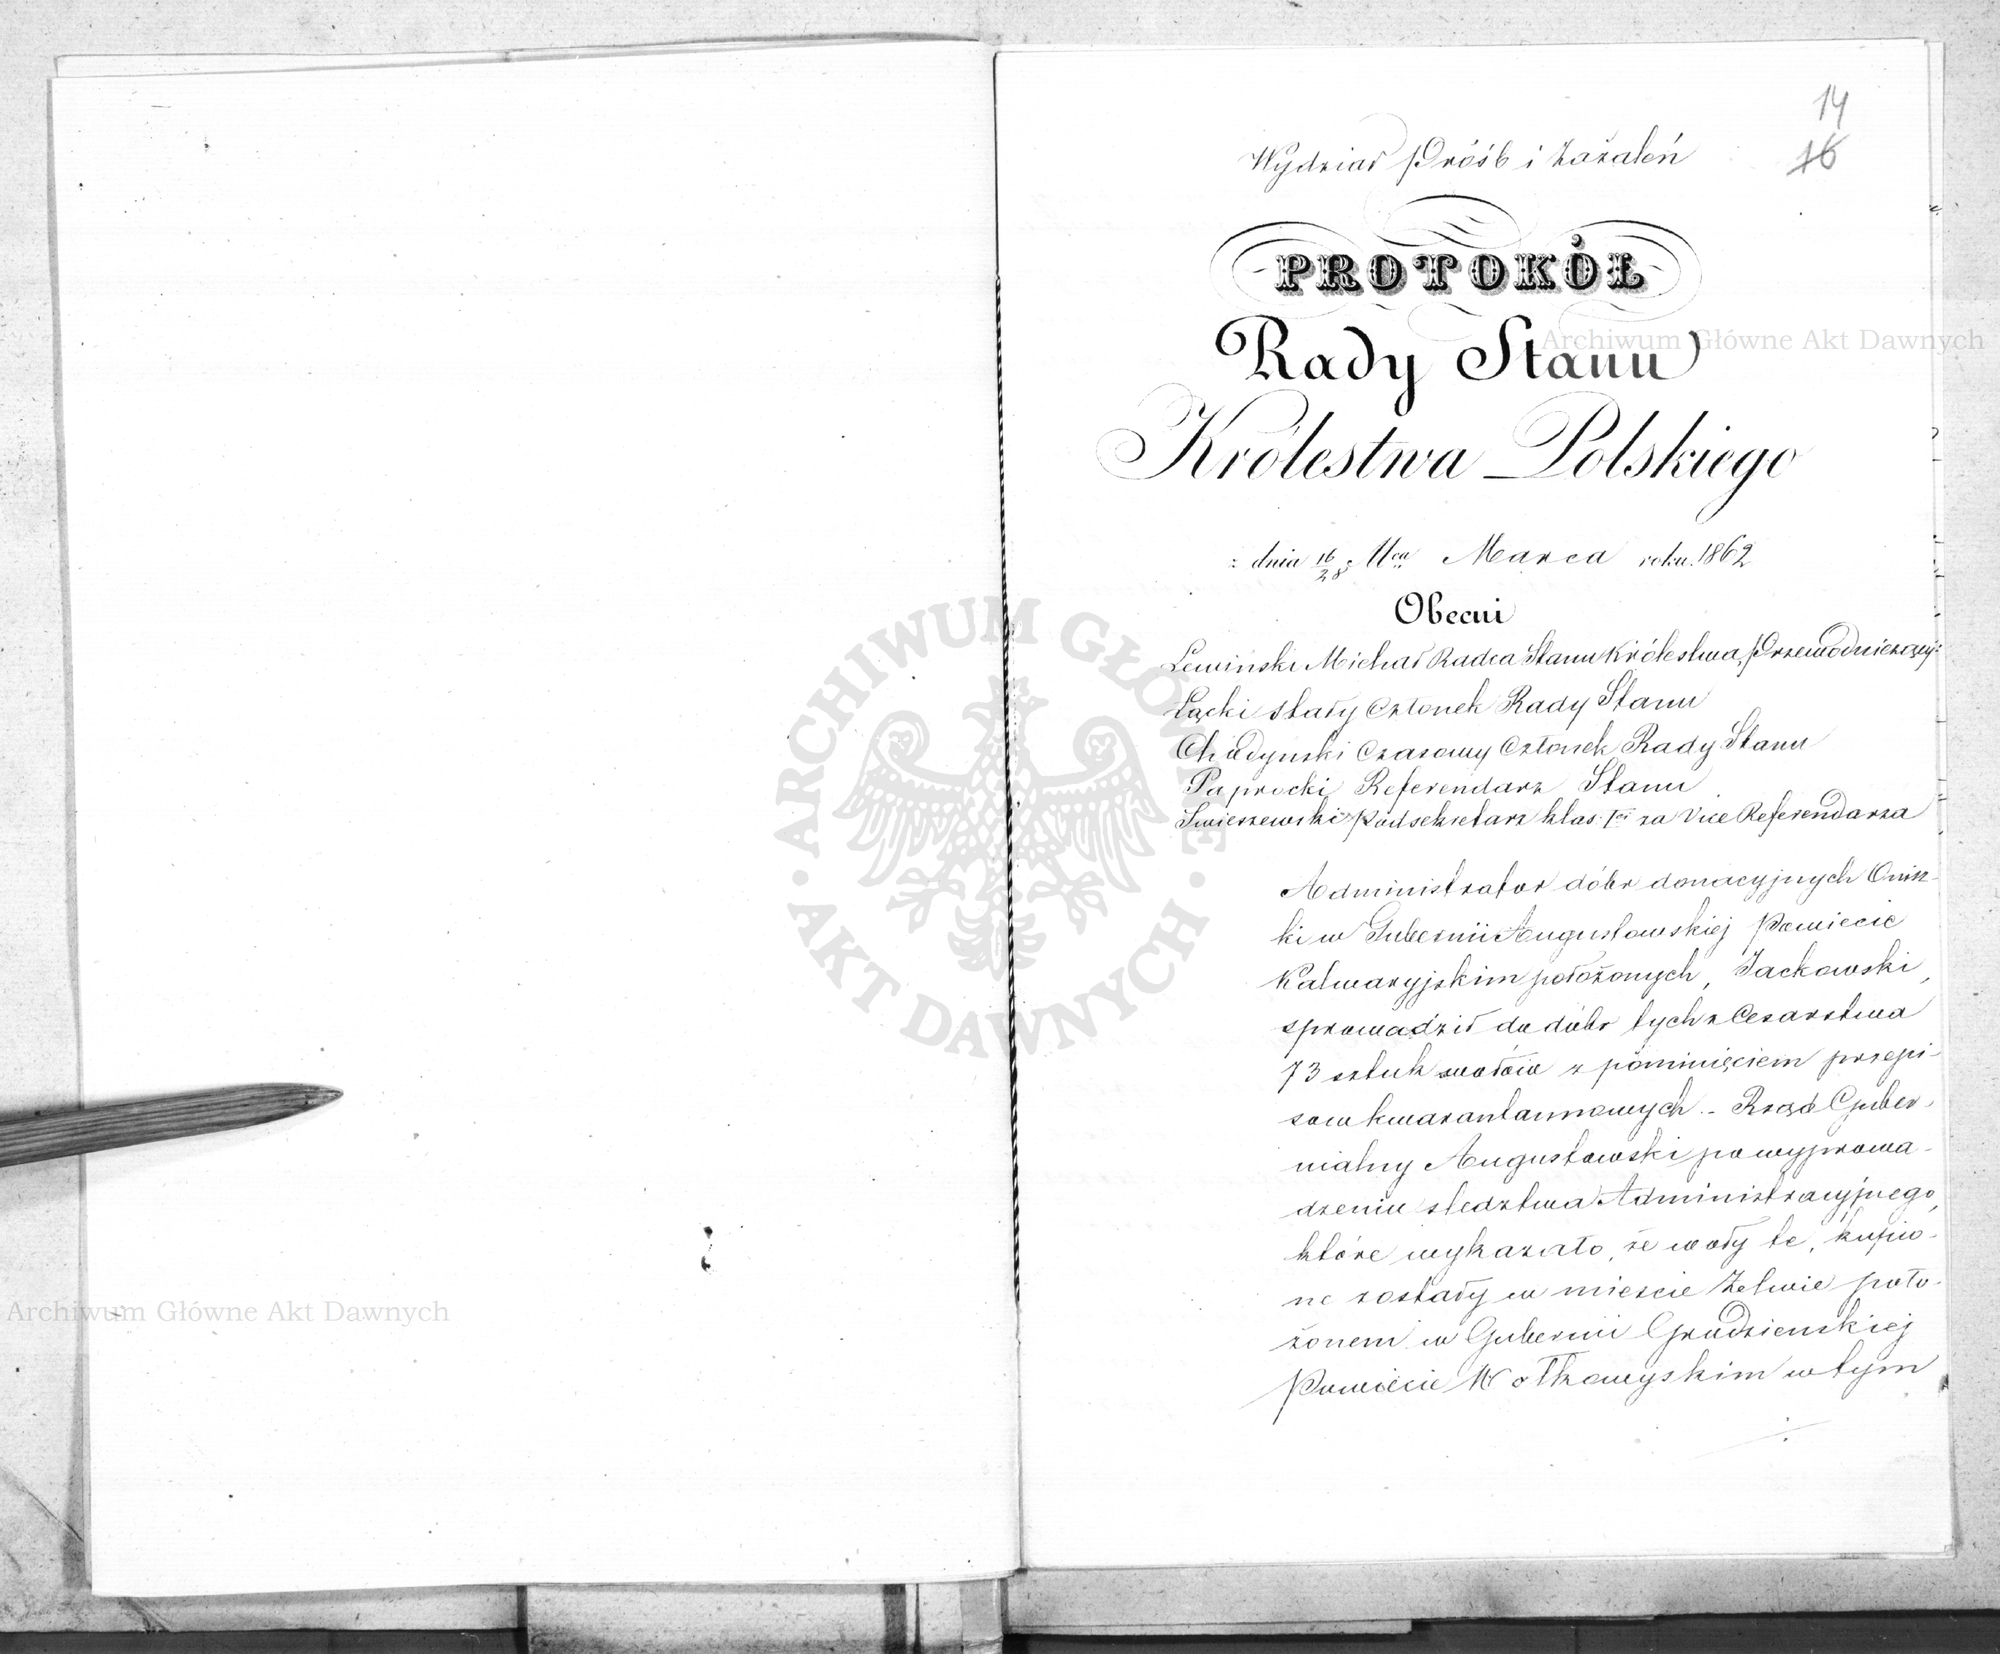 14
16
Wydział Próśb i Zażaleń
PROTOKÓŁ
Rady Stanu
Królestwa Polskiego
z dnia 16/28 Mca Marca roku 1862
Obecni
Lewiński Michał Radca Stanu Królestwa, Przewodniczący
Łącki stały Członek Rady Stanu
Chądyński Czasowy Członek Rady Stanu
Paprocki Referendarz Stanu
Świeszewski Podsekretarz klas. Iej za Vice Referendarza
Administrator dóbr donacyjnych Onisz-
ki w Gubernii Augustowskiej Powiecie
Kalwaryjskim położonych, Jackowski,
sprowadził do dóbr tych z Cesarstwa
73 sztuk wołów z pominięciem przepi-
sów kwarantannowych. - Rząd Guber-
nialny Augustowski po wyprowa-
dzeniu śledztwa Administracyjnego,
które wykazało, że woły te, kupio-
ne zostały w mieście Zelwie poło-
żonem w Gubernii Grodzieńskiej
Powiecie Wołkowyskim w tym
Archiwum Główne Akt Dawnych
Archiwum Główne Akt Dawnych
ARCHIWUM GŁÓWNE AKT DAWNYCH